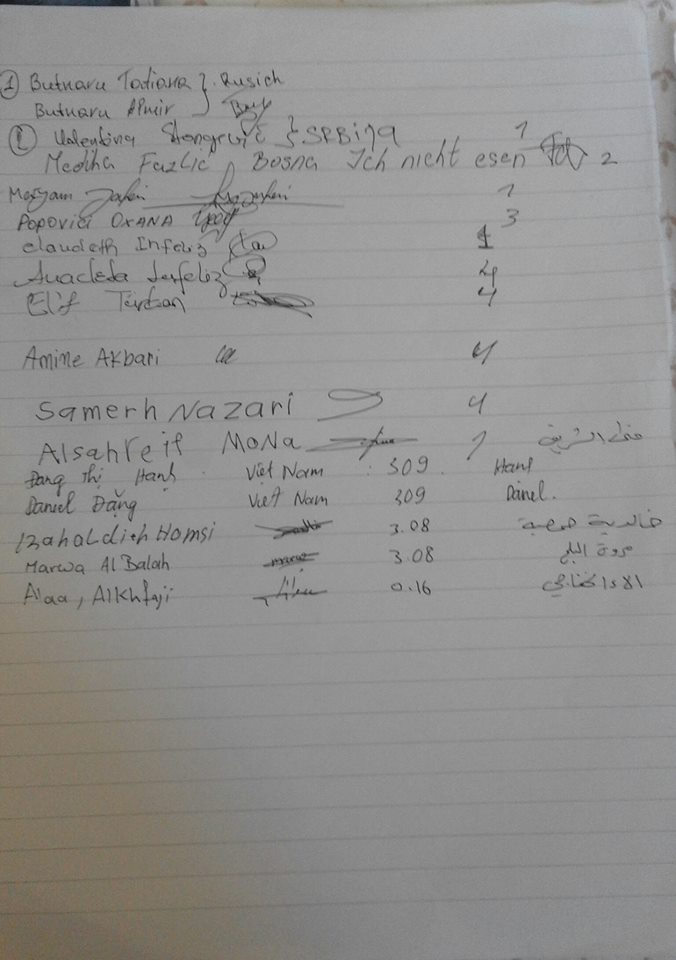 1 Butnaru Tatiana } Rusich
Butnaru
2 Valentina } SRBija 1
Mediha Fazlic Bosna Ich nicht esen 2
Maryam Jafari 1
POPOVICI OXANA 3
Claudeth Infeliz 1
Anacleta Infeliz 4
Elif Turkan 4
Amine Akbari 4
Samerh Nazari 4
Alsahreif MONA 1 منى الشريف
Đang Thị Hạnh Việt Nam 309 Hanh
Daniel Đặng Việt Nam 309 Daniel.
Homsi 3.08
Marwa Al Balah marwa 3.08 مروة البلح
Alaa, Alkhfaji 0.16 الاء الخفاجي